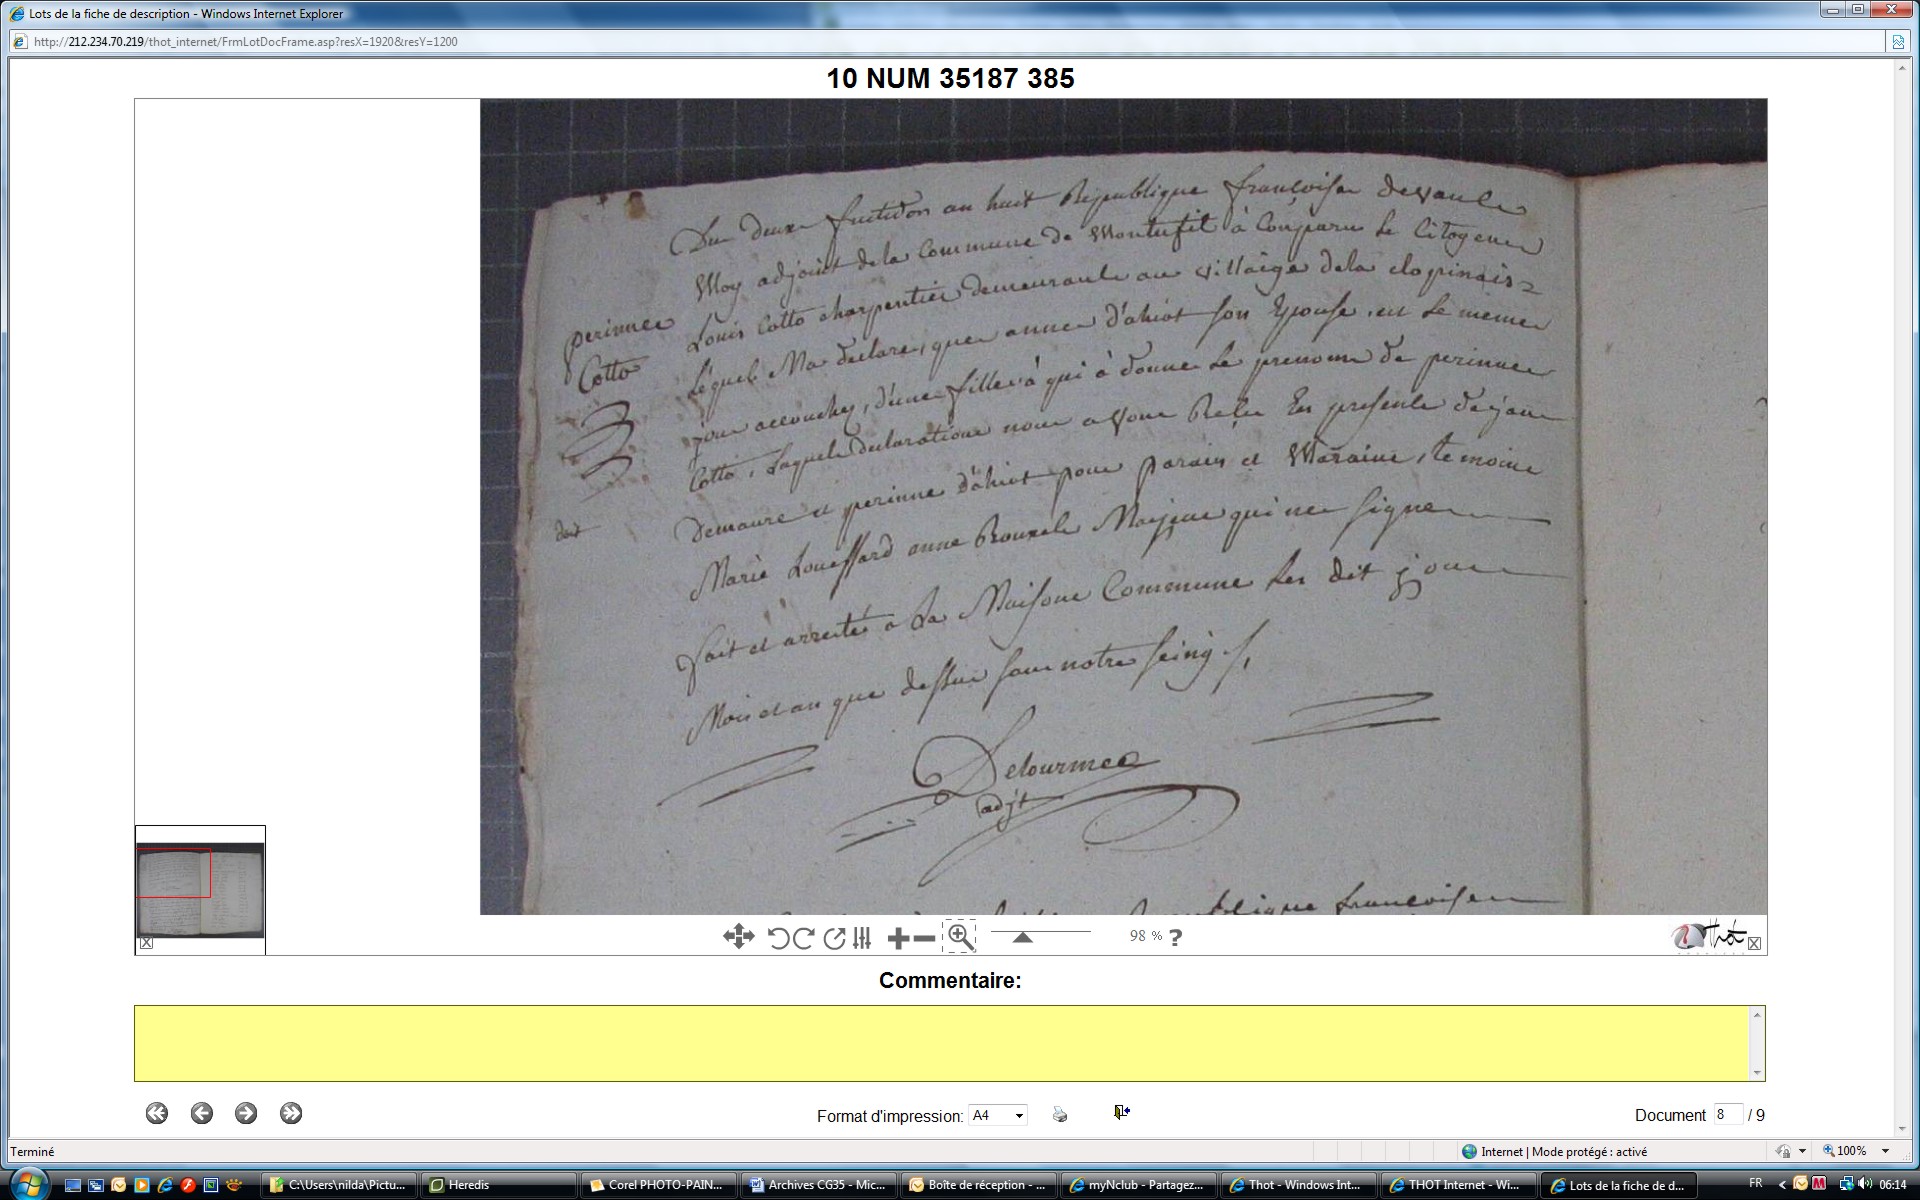 Lots de la fiche de description - Windows Internet Explorer
http://212.234.70.219/thot_internet/FrmLotDocFrame.asp?resX=1920&resY=1200
10 NUM 35187 385
Du deux fructidon an huit Republique françoisee devanle
Moy adjoint dela Commune de Monterfil à Comparu Le Citoyene
perinnee
Louis Cotto charpentier demeurante au villaige dela clopinais
Cotto
Lequel Ma declare, que anne d'ahiot son Epouse, est Le meme
jour accouchey, d'une fille à qui à donne Le prenome de perinne
Cotto, Laquele declaratione nous avone Reçu En presente de jan
demaure et perinne d'ahiot pour parain et Maraine, temoine
Marie Louessard anne Rouxele Majeue qui ne signe
fait et arreté a La Maisone Commune Les dit jour
Mois et an que dessus sous notre seing
Delourmee
adjt
Republique francoisee
98 % ?
Thot
Commentaire:
Format d'impression: A4
Document 8 / 9
Terminé
Internet | Mode protégé : activé
100%
C:\Users\nilda\Pictu...
Heredis
Corel PHOTO-PAIN...
Archives CG35 - Mic...
Boîte de réception - ...
myNclub - Partagez...
Thot - Windows Int...
THOT Internet - Wi...
Lots de la fiche de d...
FR
06:14